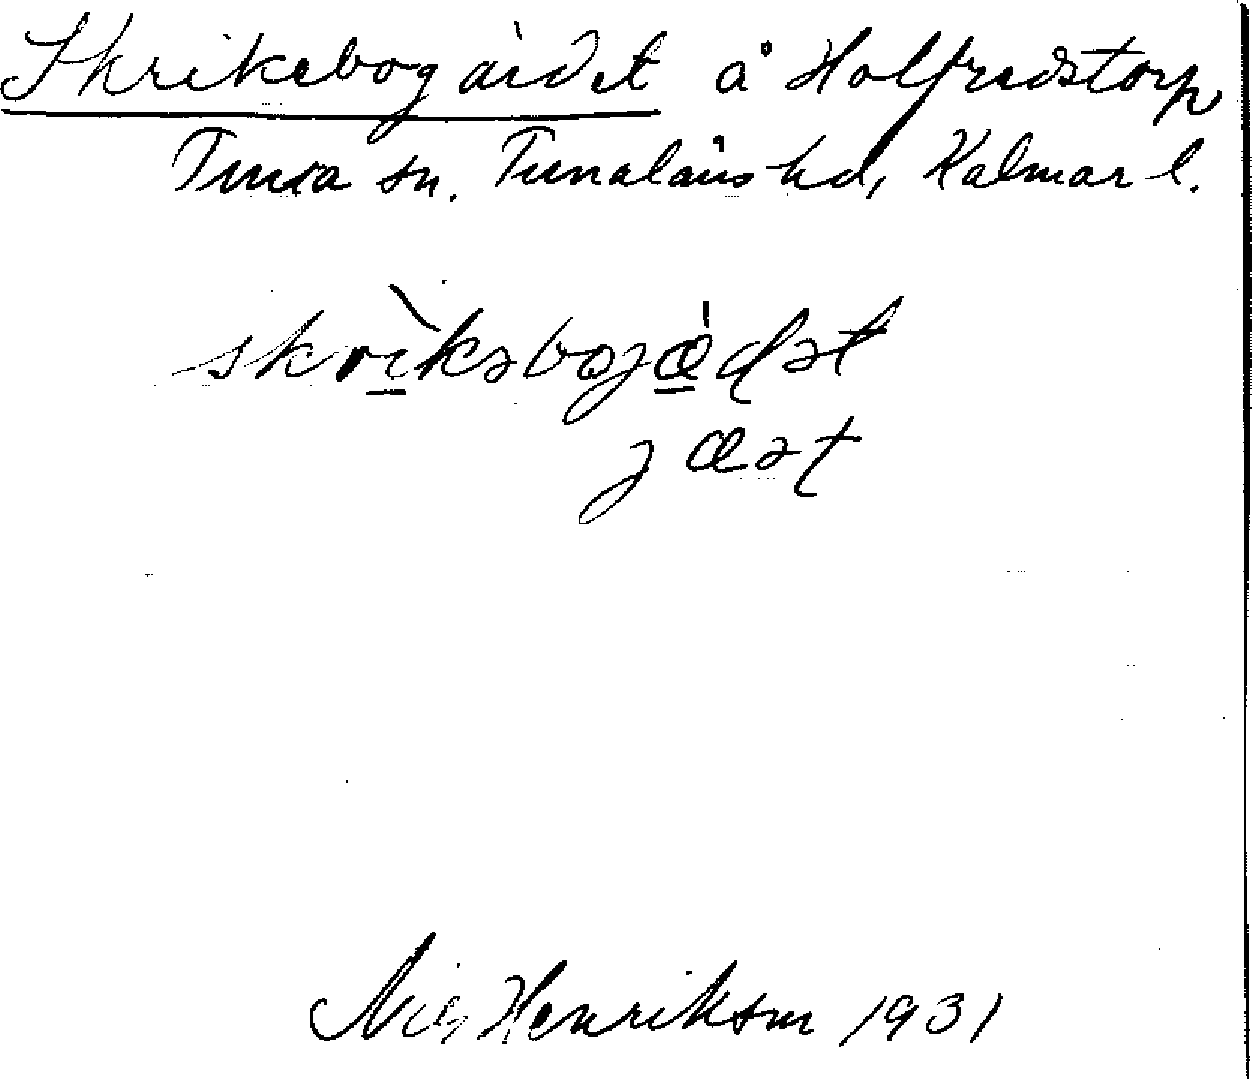 Skrikebogärdet å Holfredstorp
Tuna sn. Tunaläns hd, Kalmar l.
skrìkəbojæ̀dət
jæət
Nils Henriksson 1931